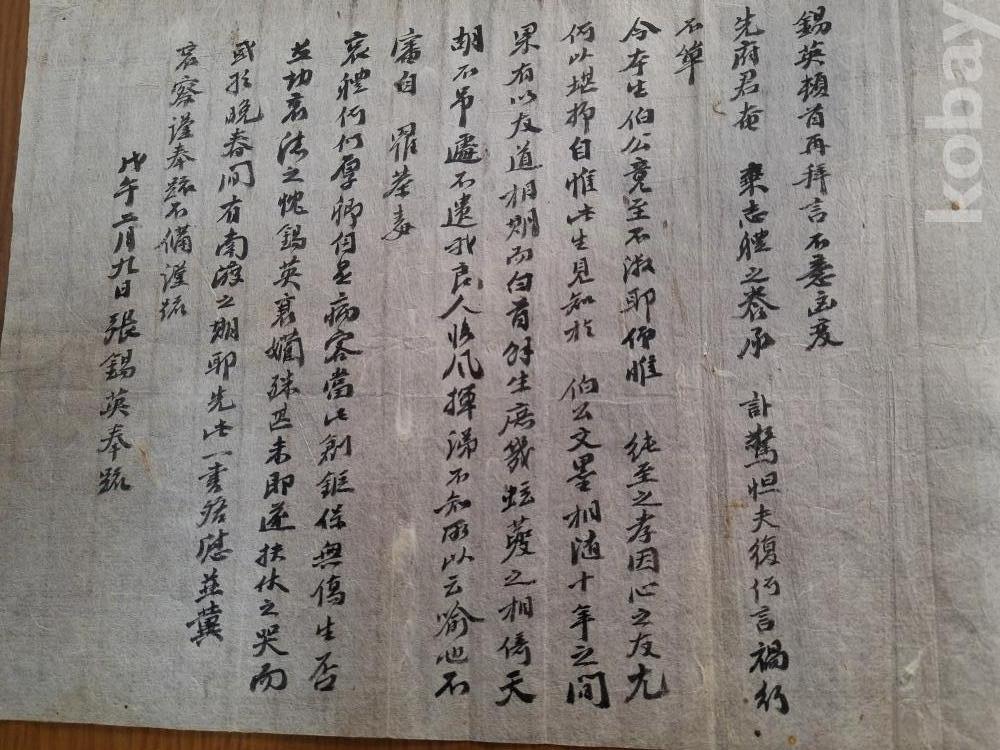 錫英頓首再拜言不意凶变
先府君奄 棄志體之養承 訃驚怛夫復何言禍行
不單
今本生伯公竟至不淑耶仰惟 純至之孝因心之友尤
何以堪抑自惟此生見知於 伯公文墨相隨十年之間
果有以友道相期而白首餘生庶幾蛩蟨之相倚天
胡不吊遽不遺我良人臨風揮涕不知所以云喻也不
審自 罹荼毒
哀體何似厚卿自是病客當此創鉅保無傷生否
並切哀溸之忱錫英衰懶殊甚未即遂扶伏之哭而
或於晚春間有南游之期耶先此一書替慰並冀
哀察謹奉疏不備謹疏
戊午二月九日張錫英奉疏
kobay